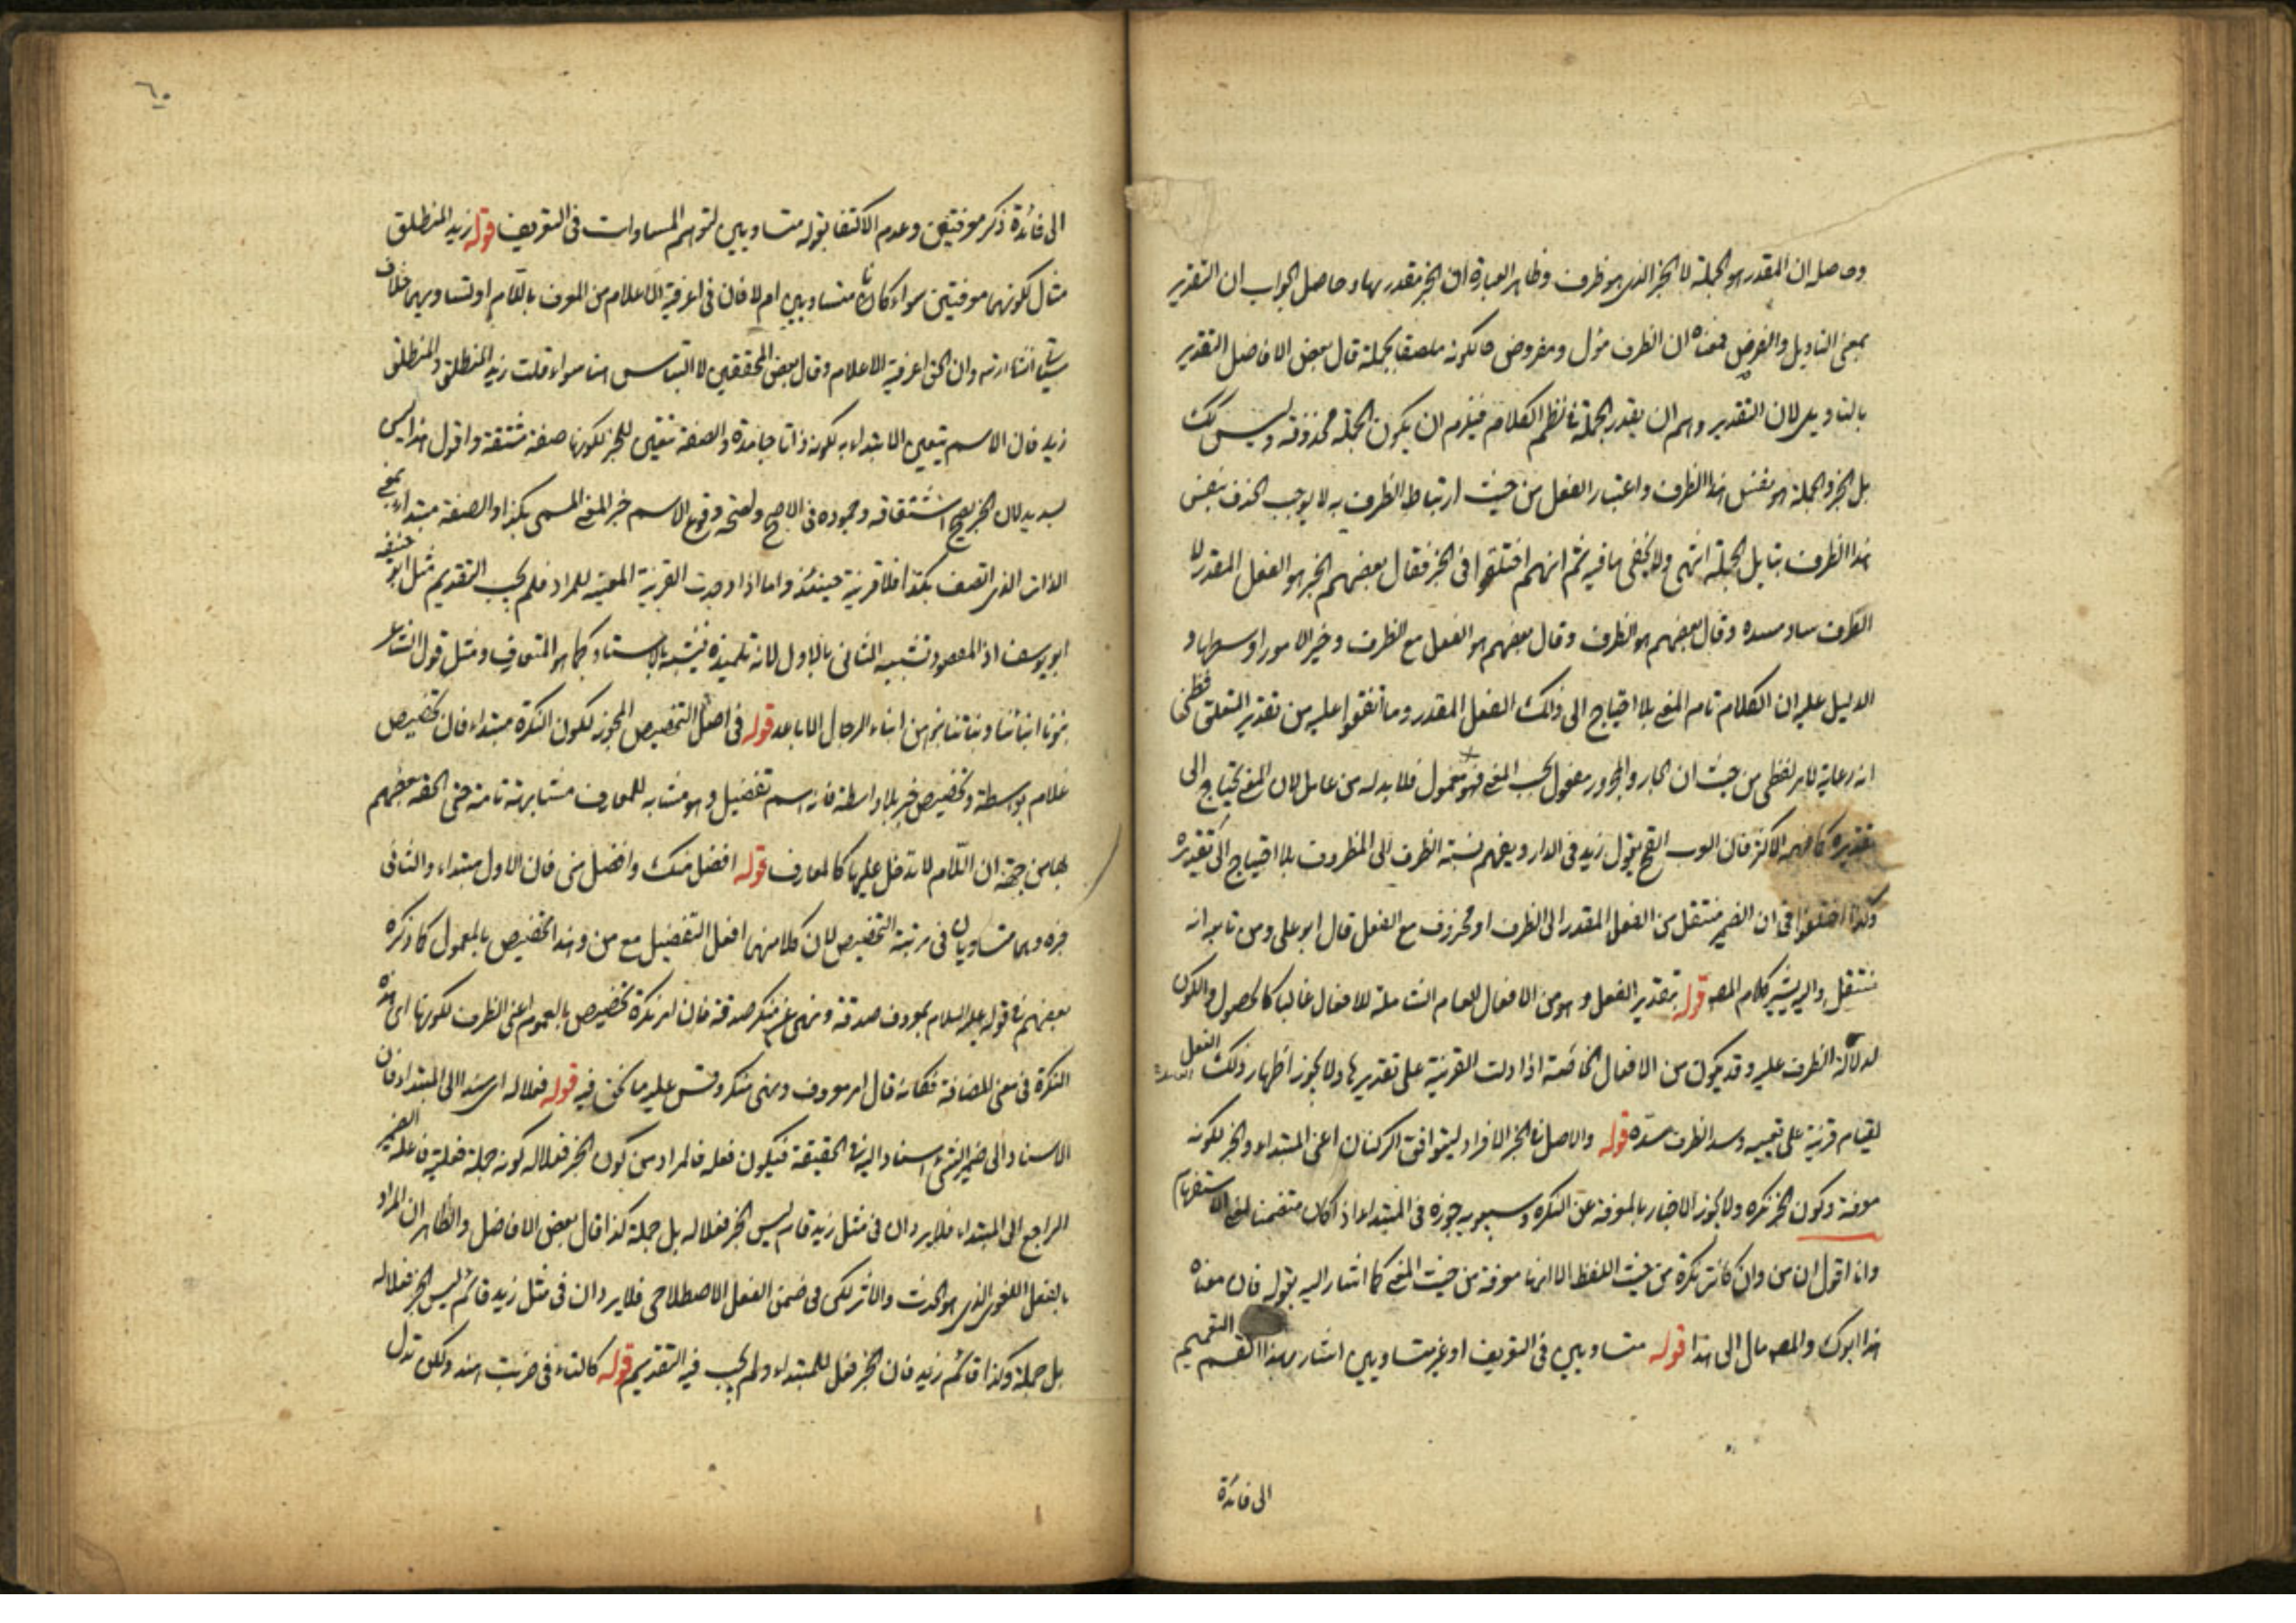 وحاصله ان المقدر هو الجملة لا الخبر الذى هو ظرف وظاهر العبارة ان الخبر مقدر بها وحاصل الجواب ان التقدير
بمعنى التاويل والفرض فمعناه ان الظرف مؤل ومفروض بجملة قال بعض الافاضل التقدير
بالتاويل لان التقدير وهم ان يقدر الجملة فى نظم الكلام فيلزم ان يكون الجملة محذوفة وليس كك
بل الخبر والجملة هو نفس هذا الظرف واعتبار الفعل من حيث ارتباط الظرف به لا يوجب الحذف بنفس
هذا الظرف بتاويل الجملة انتهى ولا يخفى ما فيه ثم انهم اختلفوا فى الخبر فقال بعضهم الخبر هو الفعل المقدر لا
الظرف ساد مسده وقال بعضهم هو الظرف وقال بعضهم هو الفعل مع الظرف وخير الامور اوسطها و
الدليل عليه ان الكلام تام المعنى بلا احتياج الى ذلك الفعل المقدر وما اتفقوا عليه من تقدير المتعلق فظنى
انه رعاية لامر لفظى من حيث ان الجار والمجرور مفعول بحسب المعنى فهو معمول فلا بد له من عامل لان المعنى يحتاج الى
تقديره كما فهمه الاكثر فان العرب القح يقول زيد فى الدار ويفهم نسبة الظرف الى المظروف بلا احتياج الى تقديره
وكذا اختلفوا فى ان الضمير منتقل من الفعل المقدر الى الظرف او محذوف مع الفعل قال ابو على ومن تابعه انه
منتقل واليه يشير كلام المصه قوله بتقدير الفعل وهو من الافعال العام الشاملة للافعال غالبا كالحصول والكون
لدلالة الظرف عليه وقد يكون من الافعال الخاصة اذا دلت القرينة على تقديرها ولا يجوز اظهار ذلك الفعل
لقيام قرينة على تعيينه وسد الظرف مسده قوله والاصل فى الخبر الافراد ليتوافق الركنان اعنى المبتداء والخبر لكونه
معرفة وكون الخبر نكره ولا يجوز الاخبار بالمعرفة عن النكره وسيبويه جوزه فى المبتداء اذا كان متضمنا لمعنى الاستفهام
وانا اقول ان من وان كانت نكرة من حيث اللفظ الا انها معرفة من حيث المعنى كما اشار اليه بقوله فان معناه
هذا ابوك والمصه مال الى هذا قوله متساويين فى التعريف او غير متساويين اشار بهذا التعميم
الى فائدة
٦٠
الى فائدة ذكر معرفتين وعدم الاكتفا بقوله متساويين لتوهم المساوات فى التعريف قوله زيد المنطلق
مثال لكونهما معرفتين سواء كانا متساويين ام لا فان فى اعرفية الاعلام من المعرف باللام او تساويهما خلاف
وان الحق اعرفية الاعلام وقال بعض المحققين لا التباس هنا سواء قلت زيد المنطلق والمنطلق
زيد فان الاسم يتعين الابتداء به لكونه ذاتا جامدة والصفة تتعين للخبر لكونها صفة مشتقة واقول هذا ليس
بسديد لان الخبر يصح اشتقاقه وجموده فى الاصح ولصحة وقوع الاسم خبرا لمعنى المسمى بكذا والصفة مبتداء بمعنى
الذات الذى اتصف بكذا فلا قرينة حينئذ واما اذا وجدت القرينة المعينة للمراد فلم يجب التقديم مثل ابو حنيفة
ابو يوسف اذ المقصود تشبيه الثانى بالاول لانه تلميذه فيشبه بالاستاد كما هو المتعارف ومثل قول الشاعر
بنونا ابنائنا وبناتنا بنوهن ابناء الرجال الاباعد قوله فى اصل التخصيص المجوز لكون النكرة مبتداء فان تخصيص
غلام بواسطة وتخصيص خير بلا واسطة فانه اسم تفضيل وهو مشابه للمعارف مشابهة تامة حتى الحقه بعضهم
بها من جهة ان اللام لا تدخل عليها كالمعارف قوله افضل منك وافضل منى فان الاول مبتداء والثانى
خبره وهما متساويان فى مرتبة التخصيص لان كلا منهما افعل التفضيل مع من وهذا تخصيص بالمعمول كما ذكره
بعضهم فى قوله عليه السلام امر بمعروف صدقة ونهى عن منكر صدقة فان امر نكرة تخصيص بالعموم اعنى الظرف لكونها اى هذه
النكرة فى معنى المضافة فكانه قال امر معروف ونهى منكر وقس عليه ما نحن فيه قوله فعلا له اى مسندا الى المبتداء فان
الاسناد الى ضمير الشئ اسناد اليه فى الحقيقة فيكون فعله فالمراد من كون الخبر فعلا له كونه جملة فعلية فاعلها الضمير
الراجع الى المبتداء فلا يرد ان فى مثل زيد قام ليس الخبر فعلا له بل جملة كذا قال بعض الافاضل والظاهر ان المراد
بالفعل اللغوى الذى هو الحدث والاثر لكن فى ضمن الفعل الاصطلاحى فلا يرد ان فى مثل زيد قائم ليس الخبر فعلا له
بل جملة وكذا قائم زيد فان الخبر فعل للمبتداء ولم يجب فيه التقديم قوله كالتاء فى ضربت هند ولكن تدل